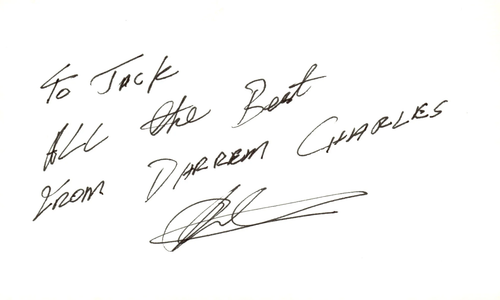 To Jack
All the Best
From Darrem Charles